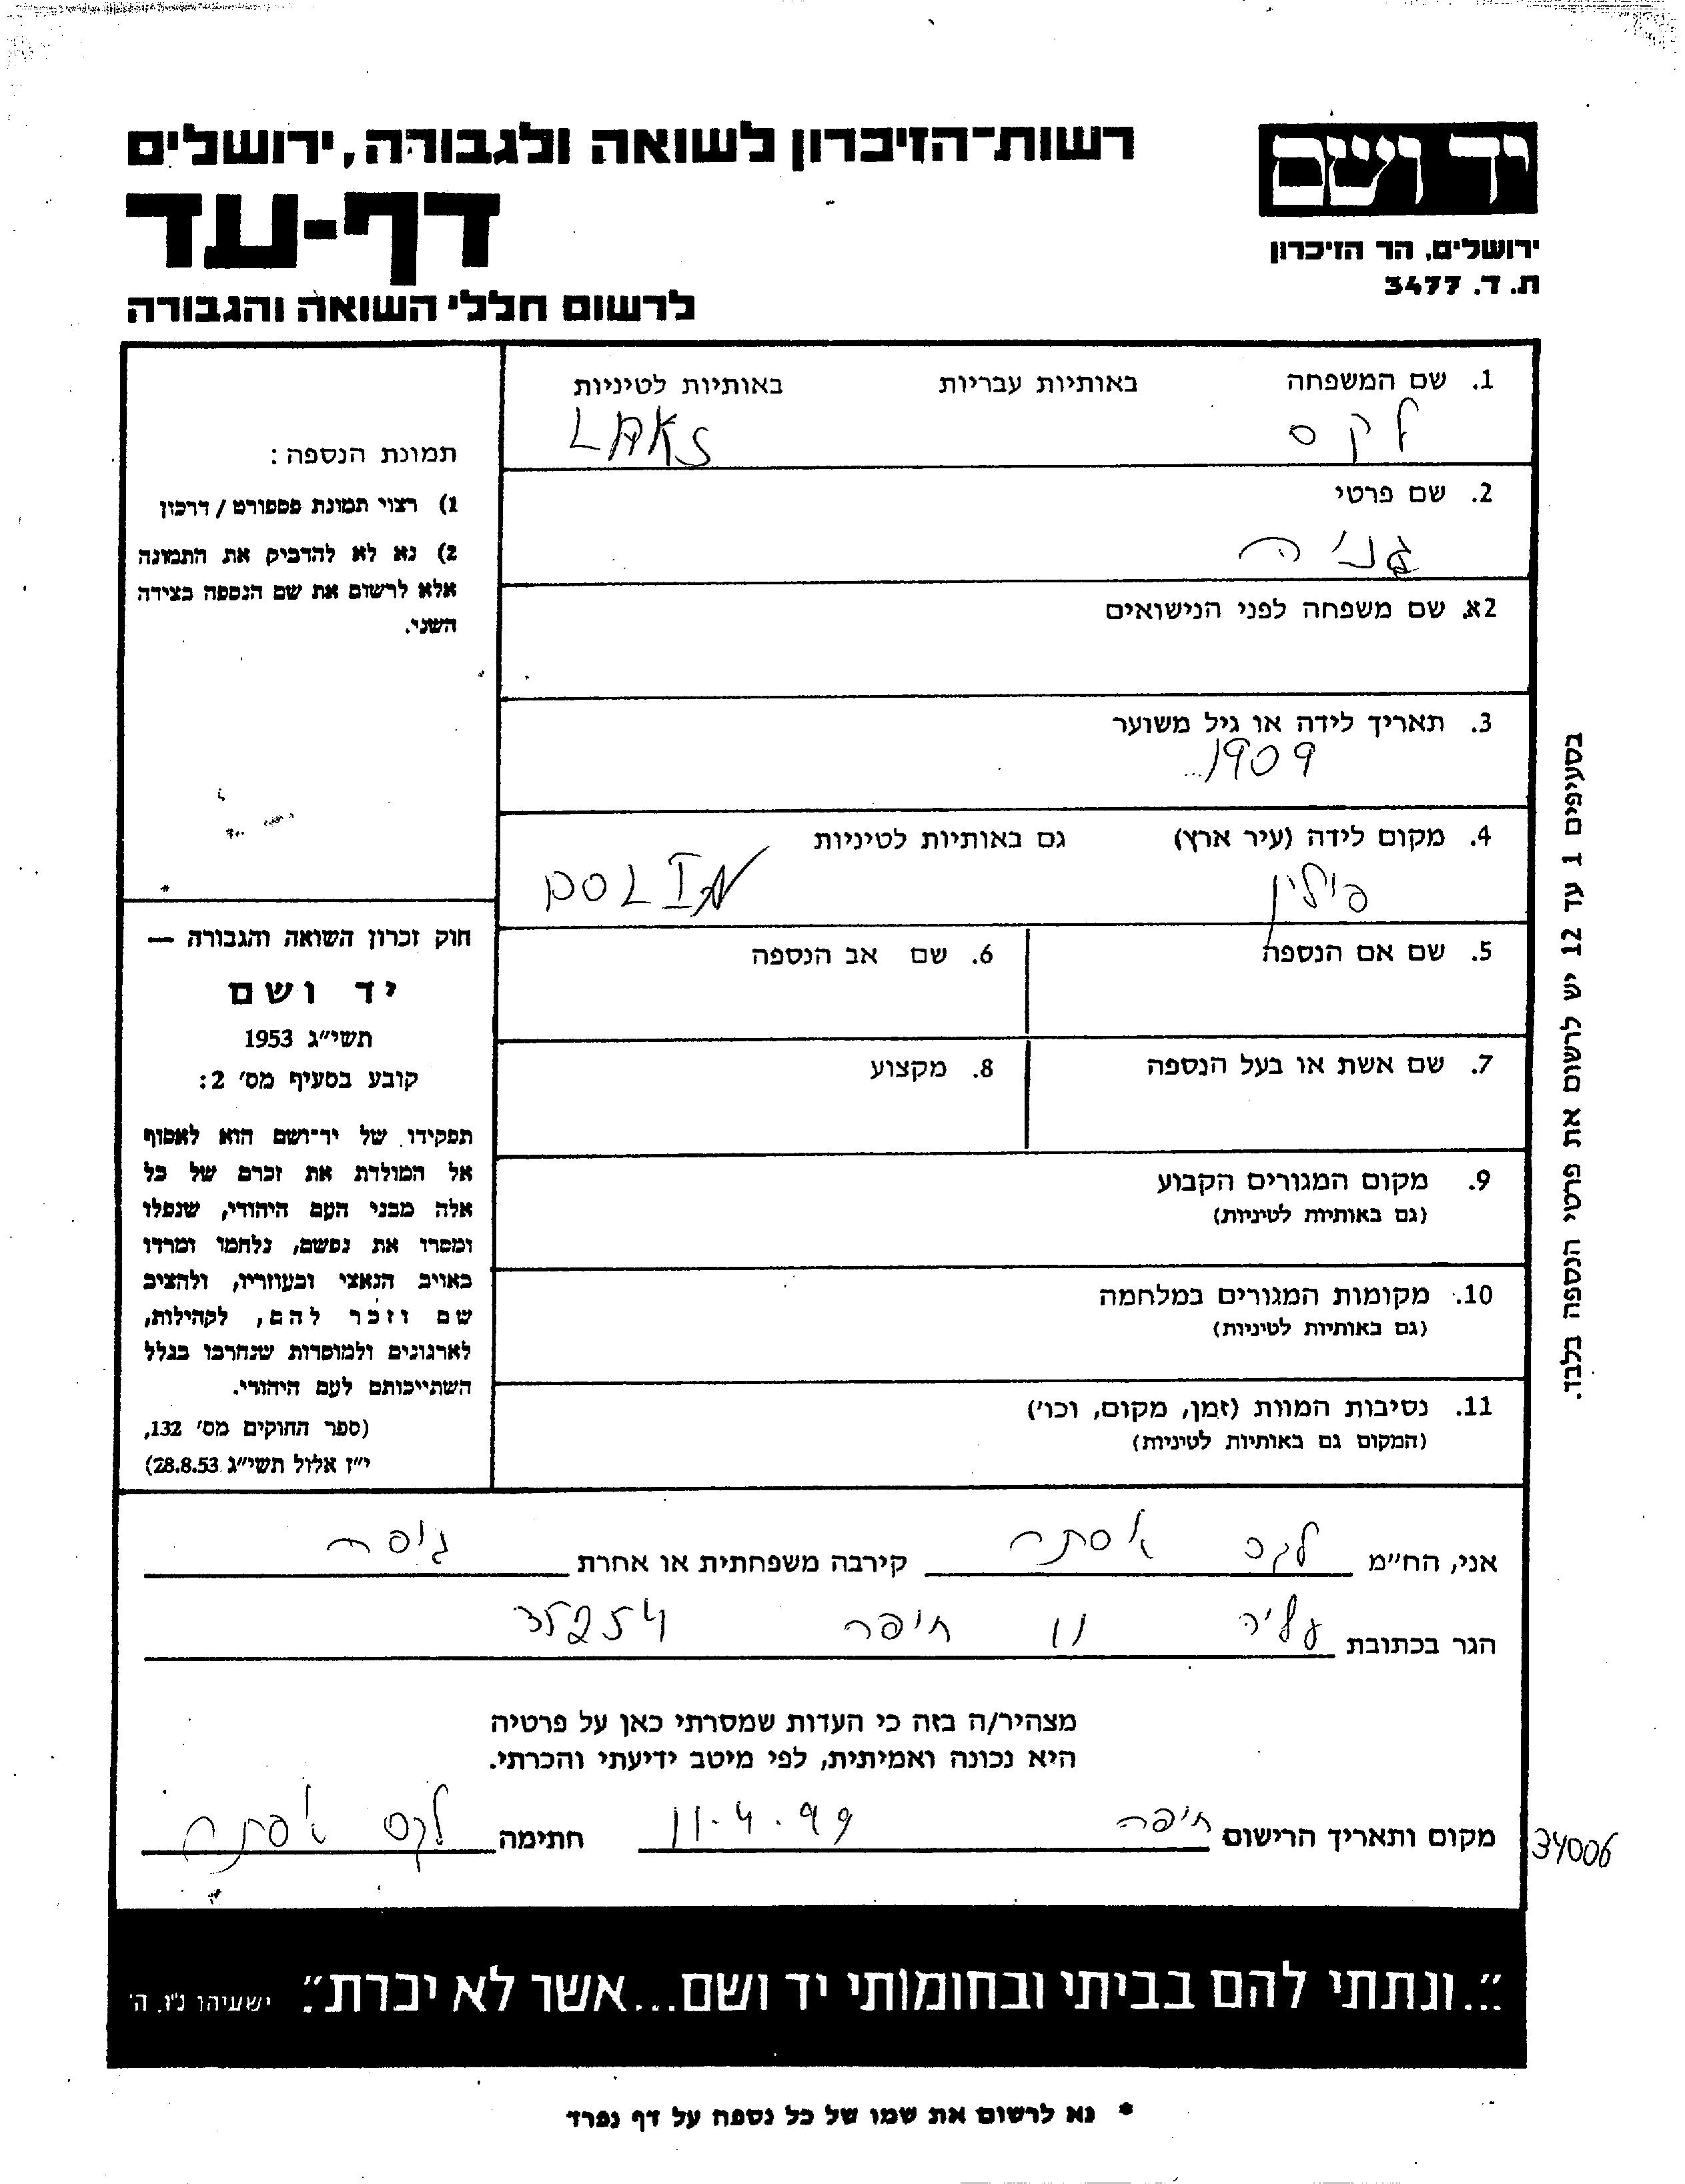 רשות־הזיכרון לשואה ולגבורה, ירושלים
יד ושם
דף-עד
ירושלים, הר הזיכרון
ת. ד. 3477
לרשום חללי השואה והגבורה
1. שם המשפחה באותיות עבריות באותיות לטיניות
לקס LAKS
2. שם פרטי
2א. שם משפחה לפני הנישואים
3. תאריך לידה או גיל משוער
1909
4. מקום לידה (עיר ארץ) גם באותיות לטיניות
פולין POLIN
5. שם אם הנספה 6. שם אב הנספה
7. שם אשת או בעל הנספה 8. מקצוע
9. מקום המגורים הקבוע
(גם באותיות לטיניות)
10. מקומות המגורים במלחמה
(גם באותיות לטיניות)
11. נסיבות המוות (זמן, מקום, וכו')
(המקום גם באותיות לטיניות)
תמונת הנספה:
1) רצוי תמונת פספורט / דרכון
2) נא לא להדביק את התמונה
אלא לרשום את שם הנספה בצידה
השני.
חוק זכרון השואה והגבורה —
יד ושם
תשי"ג 1953
קובע בסעיף מס' 2:
תפקידו של יד־ושם הוא לאסוף
אל המולדת את זכרם של כל
אלה מבני העם היהודי, שנפלו
ומסרו את נפשם, נלחמו ומרדו
באויב הנאצי ובעוזריו, ולהציב
שם וזכר להם, לקהילות,
לארגונים ולמוסדות שנחרבו בגלל
השתייכותם לעם היהודי.
(ספר החוקים מס' 132,
י"ז אלול תשי"ג 28.8.53)
בסעיפים 1 עד 12 יש לרשום את פרטי הנספה בלבד.
אני, הח"מ לקס אסתר קירבה משפחתית או אחרת גיסה
הגר בכתובת עליה 11 חיפה 35254
מצהיר/ה בזה כי העדות שמסרתי כאן על פרטיה
היא נכונה ואמיתית, לפי מיטב ידיעתי והכרתי.
מקום ותאריך הרישום חיפה 11.4.99 חתימה לקס אסתר
34006
"...ונתתי להם בביתי ובחומותי יד ושם...אשר לא יכרת". ישעיהו נ"ו, ה'
* נא לרשום את שמו של כל נספה על דף נפרד